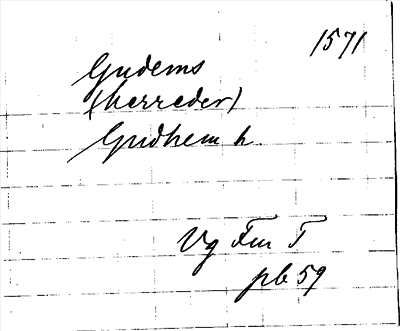 1571
Gudems
(herreder)
Gudhem h.
Vg Fur T
pb 59